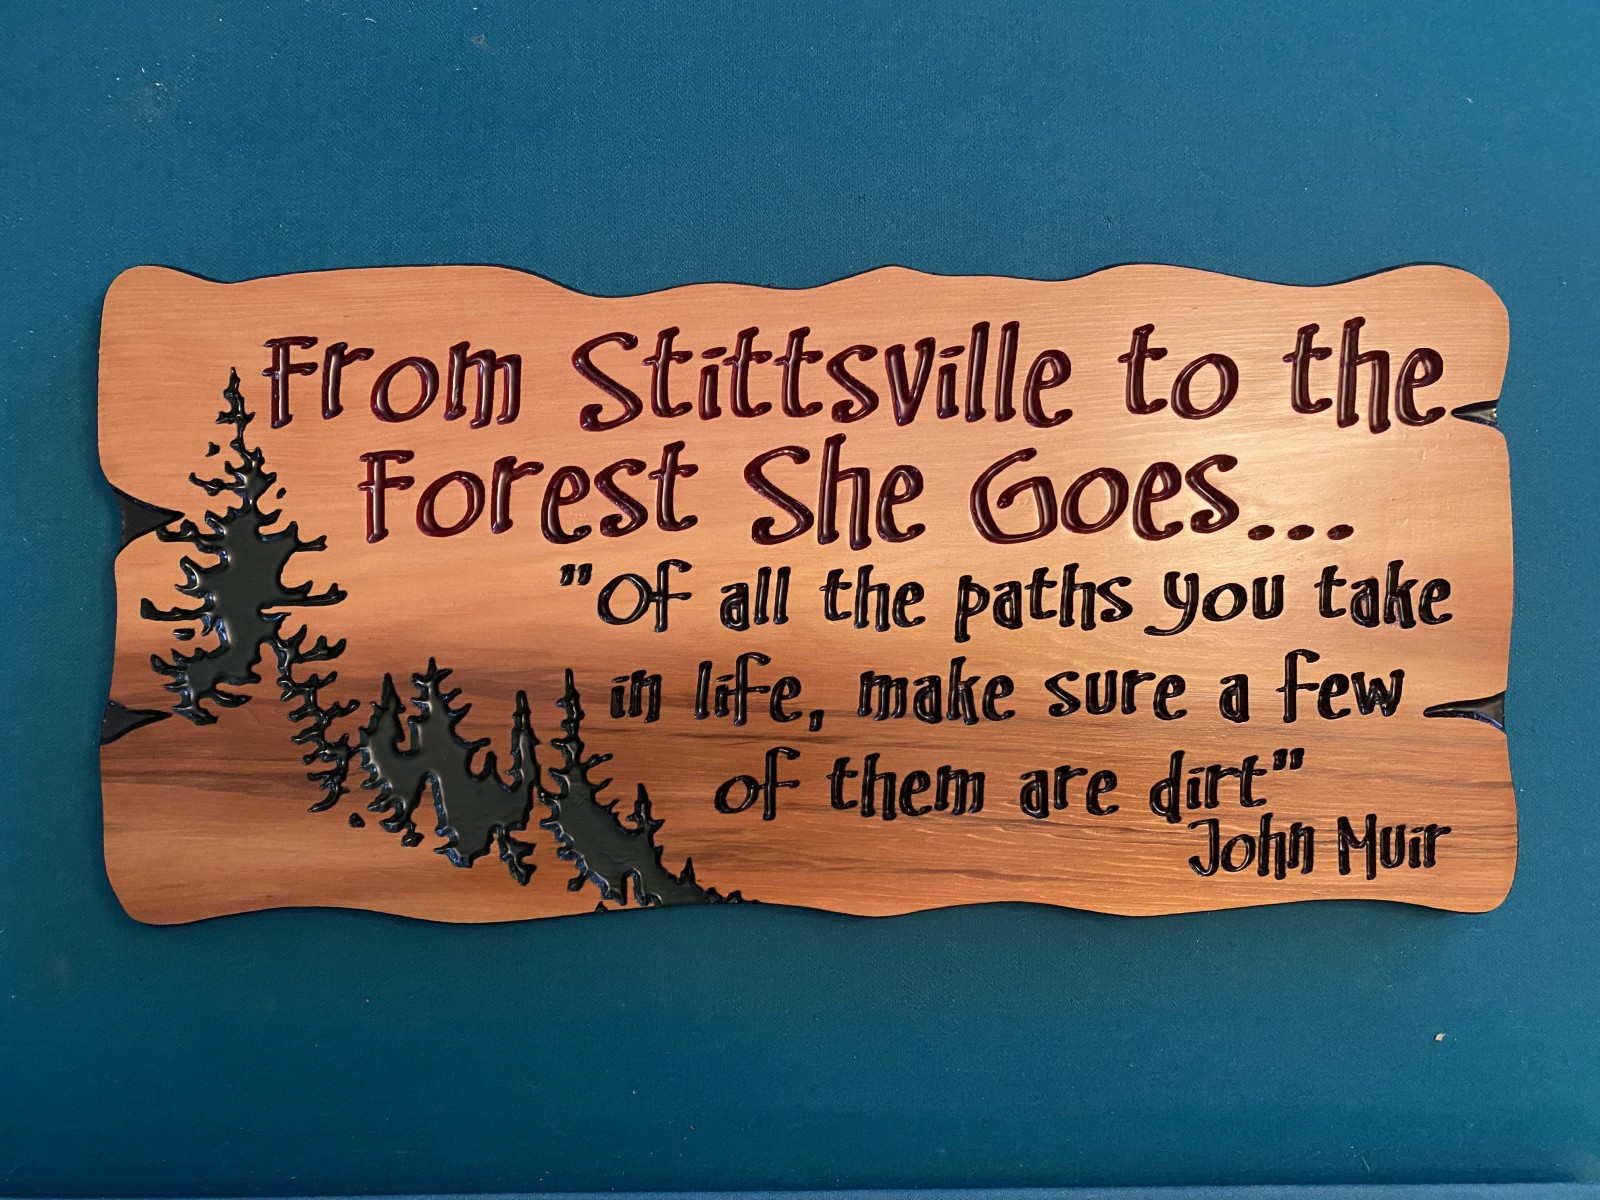 From Stittsville to the
Forest She Goes...
"Of all the paths you take
in life, make sure a few
of them are dirt"
John Muir